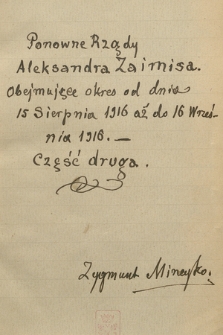 Ponowne Rządy
Aleksandra Zaimisa.
Obejmujące okres od dnia
15 Sierpnia 1916 aż do 16 Wrześ-
nia 1916. —
Część druga.
Zygmunt Mineyko.